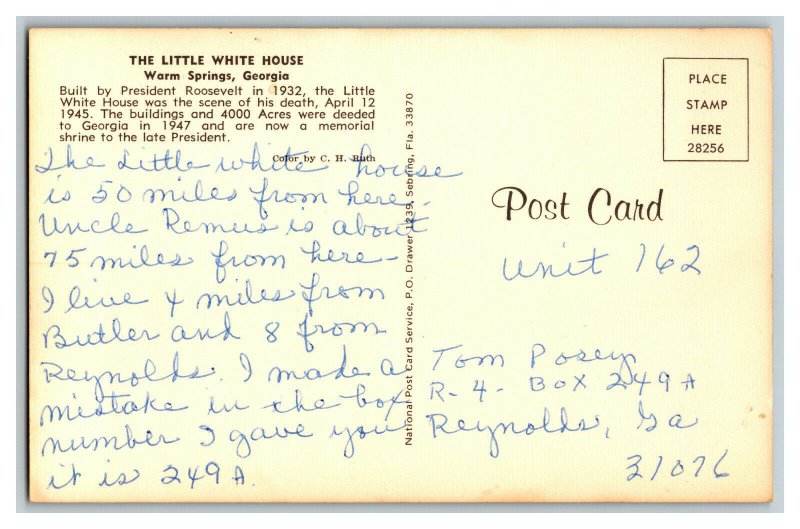 THE LITTLE WHITE HOUSE
Warm Springs, Georgia
Built by President Roosevelt in 1932, the Little
White House was the scene of his death, April 12
1945. The buildings and 4000 Acres were deeded
to Georgia in 1947 and are now a memorial
shrine to the late President.
Color by C. H. Ruth
The Little white house
is 50 miles from here.
Uncle Remus is about
75 miles from here-
I live 4 miles from
Butler and 8 from
Reynolds. I made a
mistake in the box
number I gave you
it is 249A.
National Post Card Service, P.O. Drawer 1239, Sebring, Fla. 33870
PLACE
STAMP
HERE
28256
Post Card
Unit 162
Tom Posey
R-4- Box 249A
Reynolds, Ga
31076